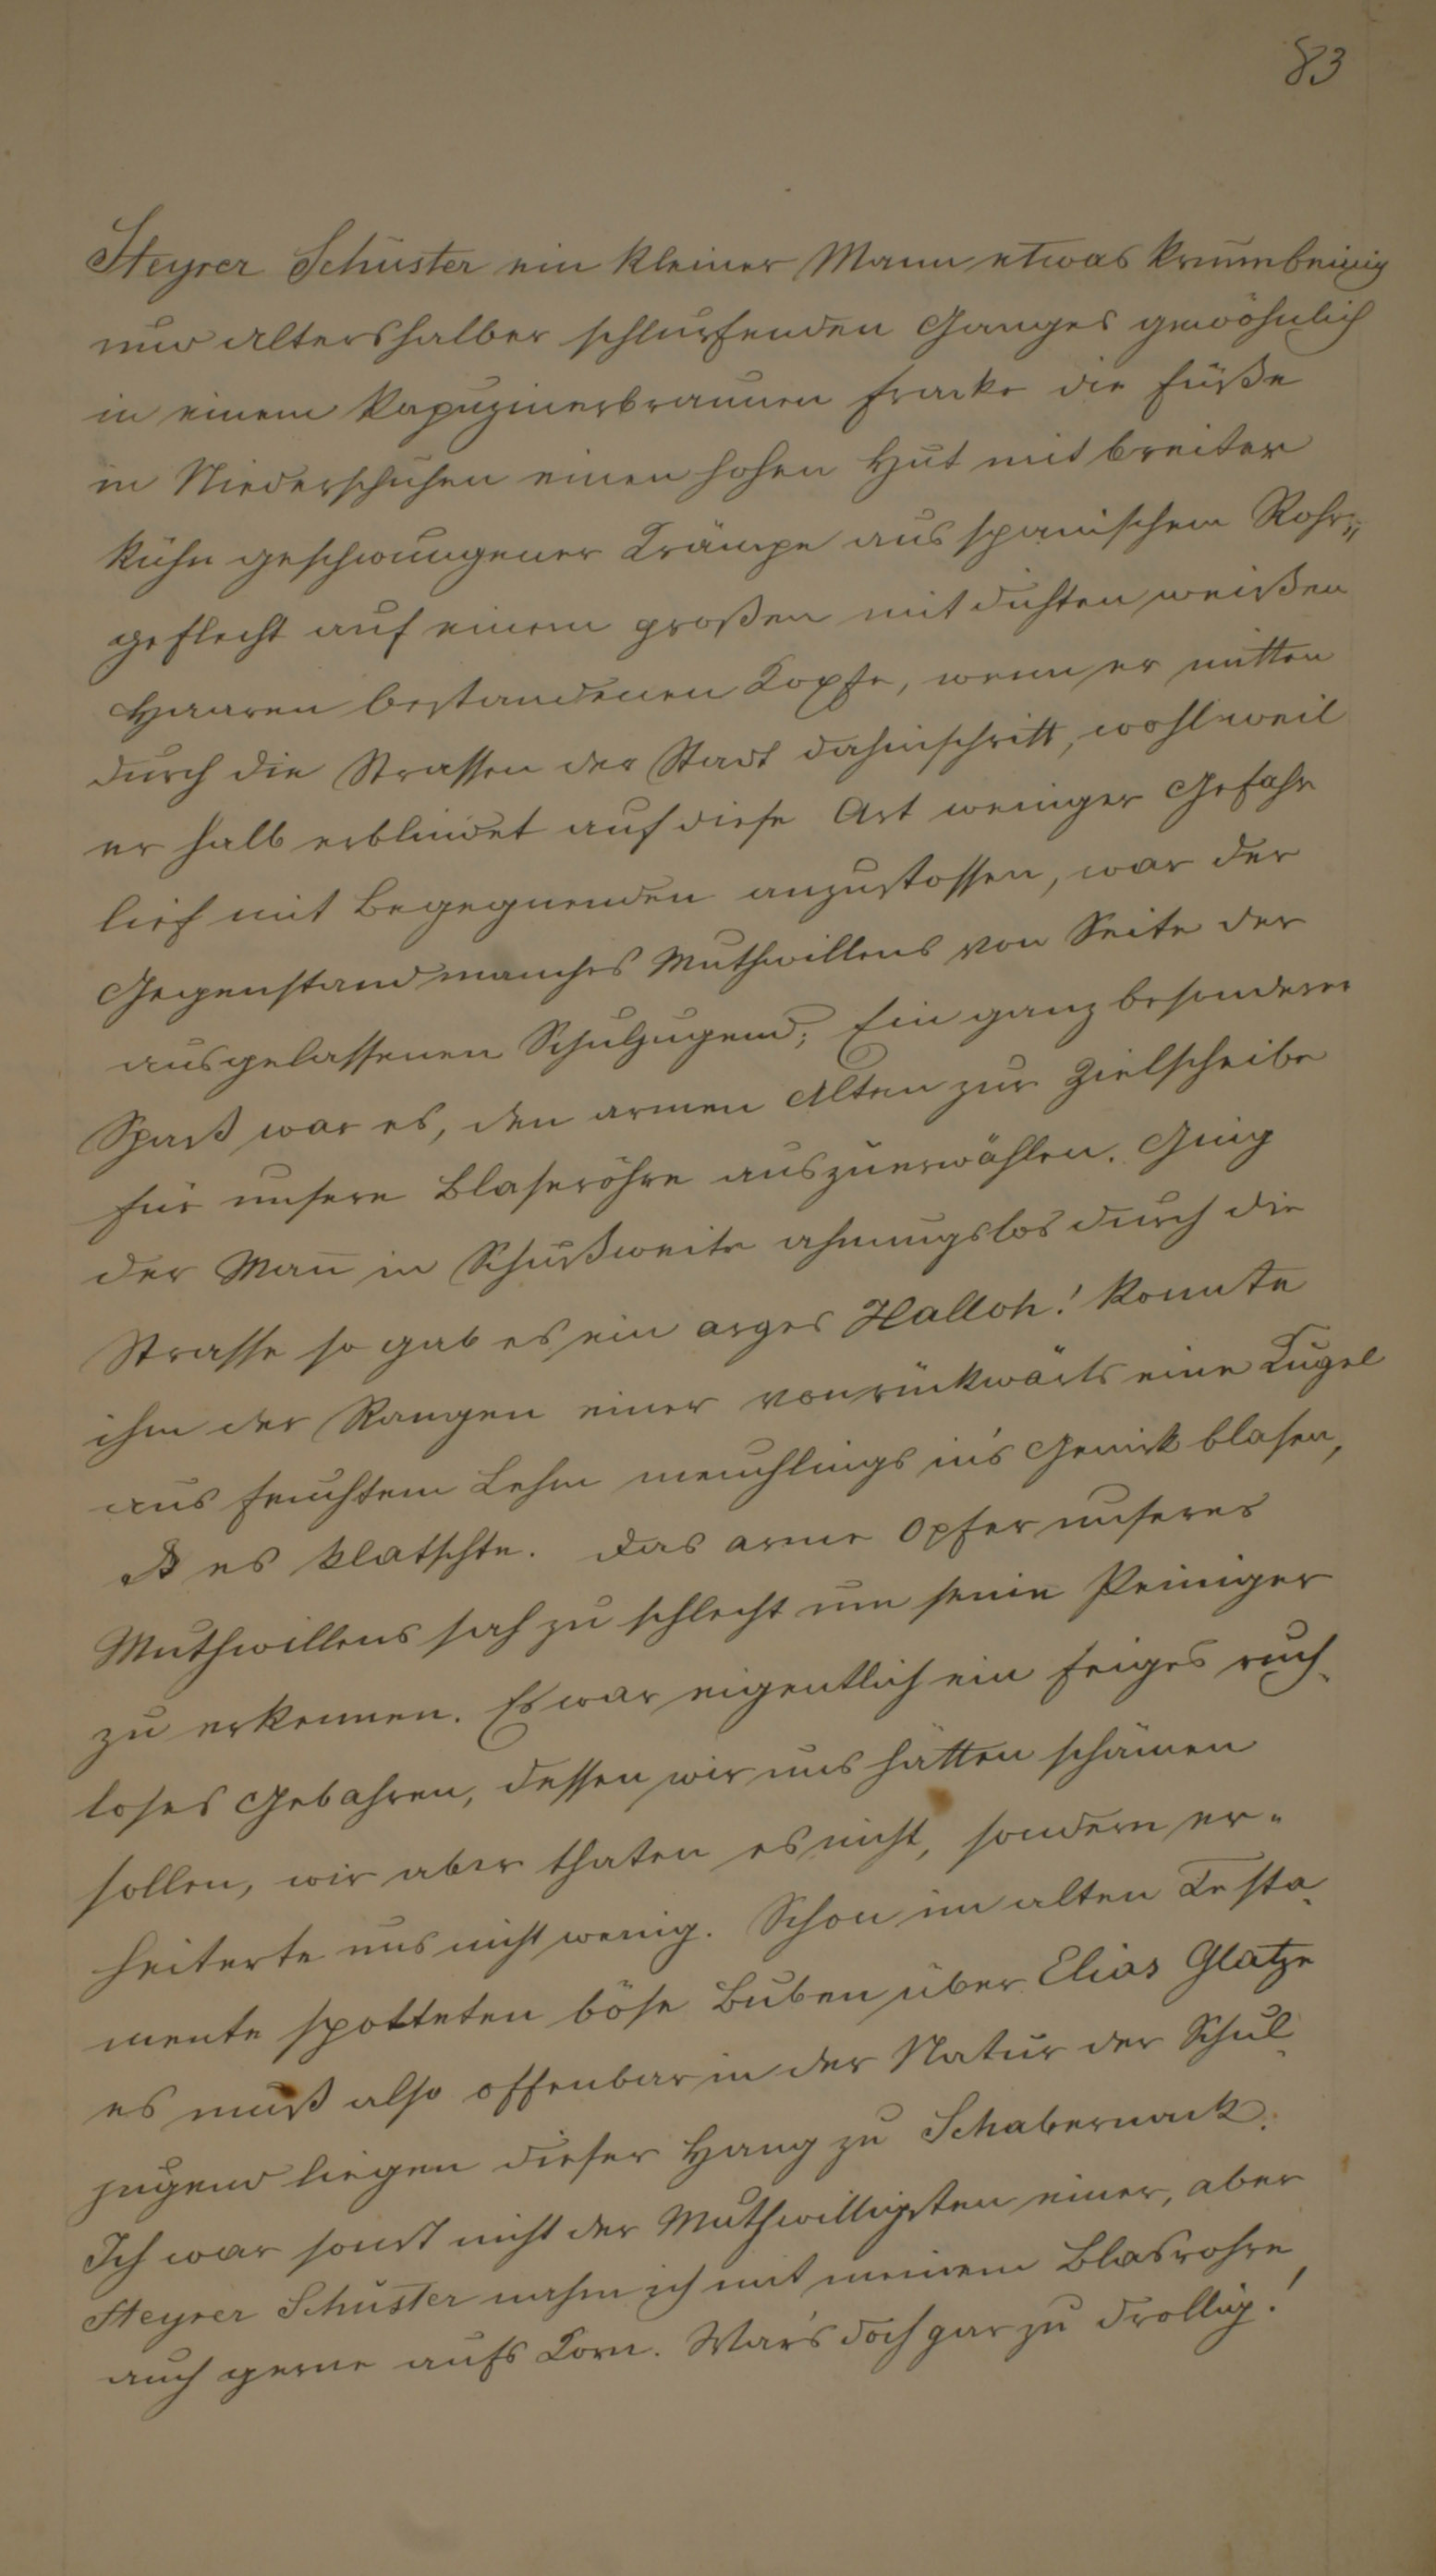 83
Steyrer Schuster ein kleiner Mann etwas krummbeinig
und altershalber schlurfenden Ganges gewöhnlich
in einem kapuzinerbraunen Fracke die Füße
in Niederschuhen einen hohen Hut mit breiter
kühn geschwungener Krämpe aus spanischem Rohr„
geflecht auf einem großen mit dichten weißen
Haaren bestandenen Kopfe, wenn er mitten
durch die Strassen der Stadt dahinschritt, wohl weil
er halb erblindet auf diese Art weniger Gefahr
lief mit Begegnenden anzustossen, war der
Gegenstand manches Muthwillens von Seite der
ausgelassenen Schuljugend; Ein ganz besonderer
Spaß war es, den armen Alten zur Zielscheibe
für unsere Blaseröhre auszuerwählen. Ging
der Mañ in Schußweite ahnungslos durch die
Strasse so gab es ein arges Halloh! konnte
ihm der Rangen einer von rückwärts eine Kugel
aus feuchtem Lehm meuchlings in's Genick blasen,
es klatschte. Das arme Opfer unseres
Muthwillens sah zu schlecht um seine Peiniger
zu erkennen. Es war eigentlich ein feiges ruch-
loses Gebahren, dessen wir uns hätten schämen
sollen, wir aber thaten es nicht, sondern er-
heiterte uns nicht wenig. Schon im alten Testa-
mente spotteten böse Buben über Elias Glatze
es muß also offenbar in der Natur der Schul-
jugend liegen dieser Hang zu Schabernack.
Ich war sonst nicht der Muthwilligsten einer, aber
Steyrer Schuster nahm ich mit meinem Blasrohre
auch gerne aufs Korn. War's doch gar zu drollig!